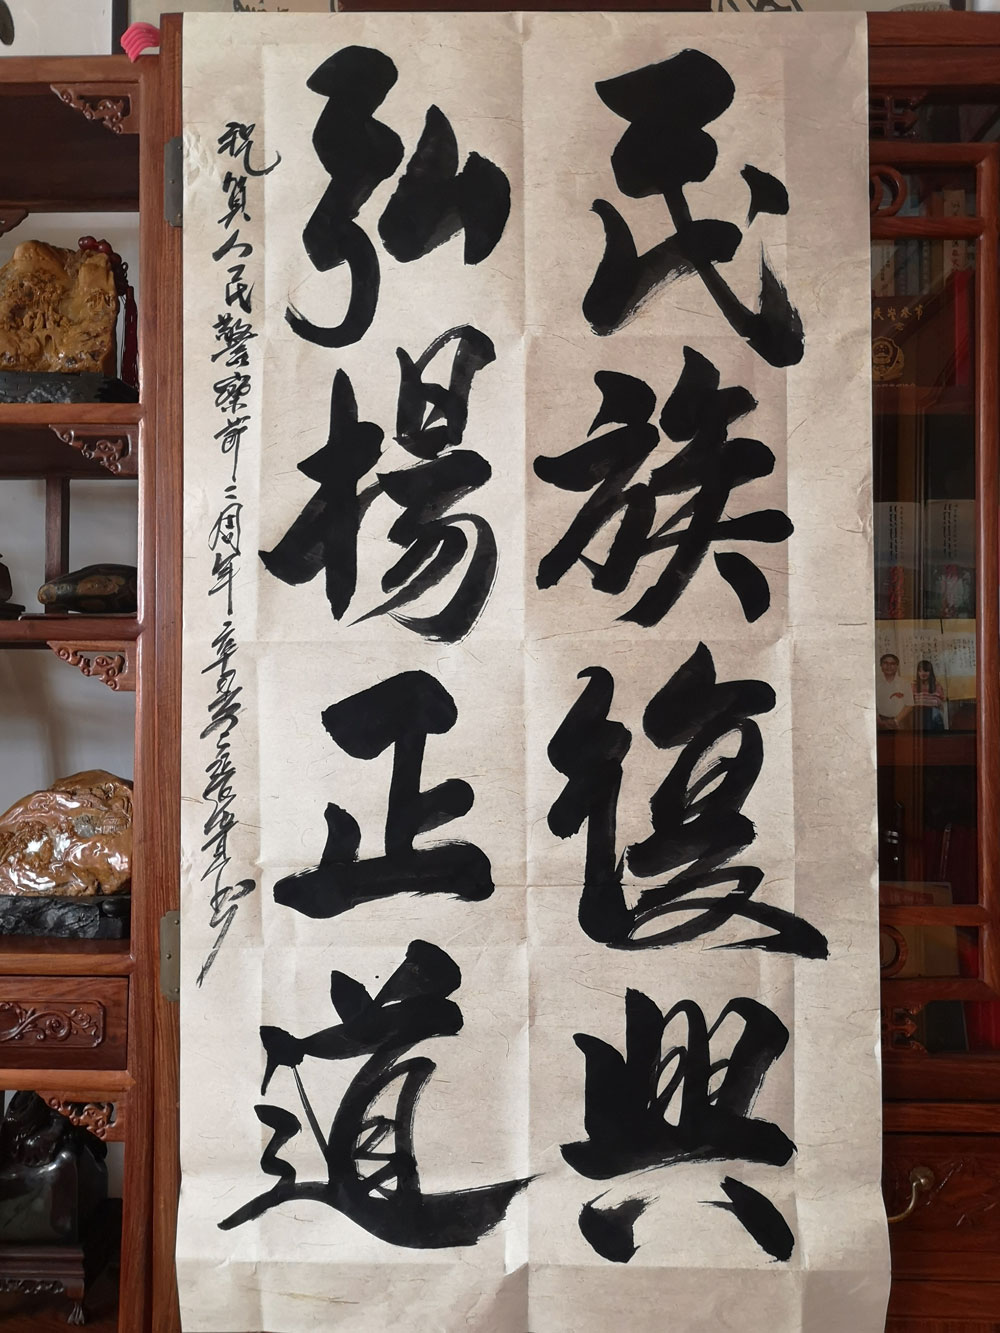 民族復興
弘揚正道
祝賀人民警察節二周年 辛丑
書